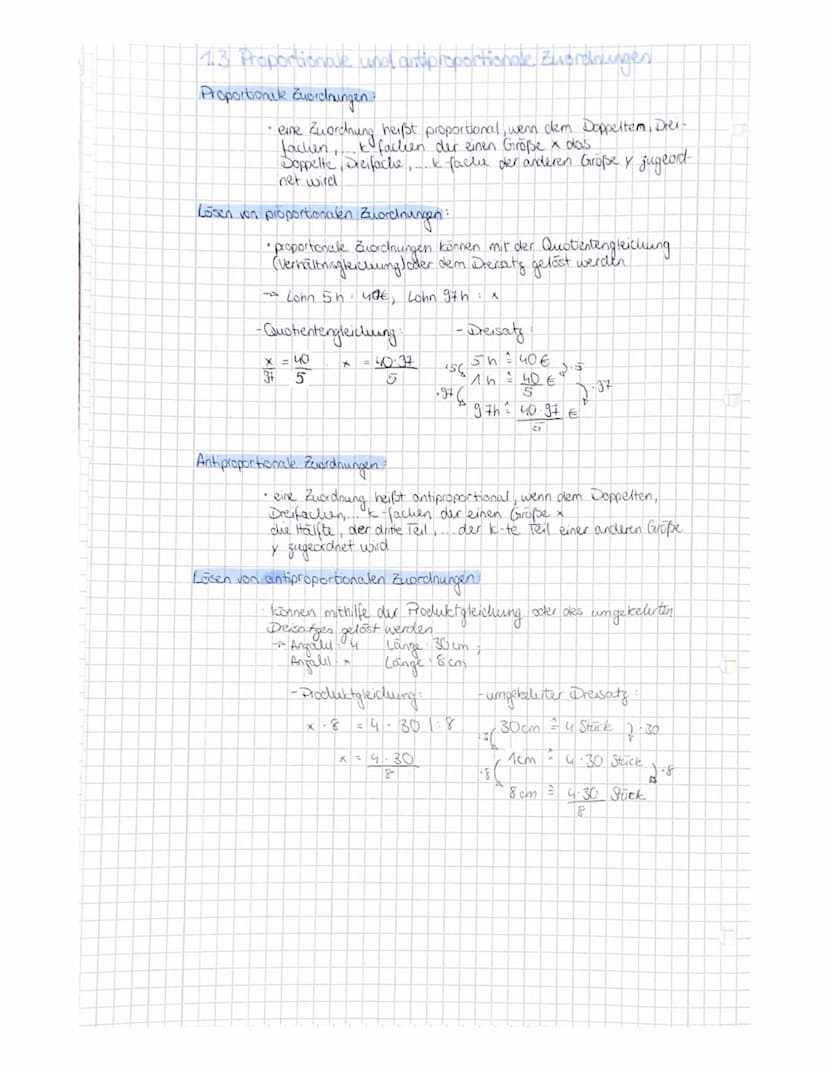 1.3 Proportionale und antiproportionale Zuordnungen
Proportionale Zuordnungen:
· eine Zuordnung heißt proportional, wenn dem Doppeltem, Drei-
fachen, ... k-fachen der einen Größe x das
Doppelte, Dreifache, ... k-fache der anderen Größe y zugeord-
net wird
Lösen von proportionalen Zuordnungen:
· proportionale Zuordnungen können mit der Quotientengleichung
(Verhältnisgleichung) oder dem Dreisatz gelöst werden
→ Lohn 5h : 40€, Lohn 97h : x
- Quotientengleichung: - Dreisatz:
x/97 = 40/5 x = 40·97/5
5h ≙ 40€
1h ≙ 40/5 €
·97 97h ≙ 40·97/5 € ·97
Antiproportionale Zuordnungen:
· eine Zuordnung heißt antiproportional, wenn dem Doppelten,
Dreifachen, ... k-fachen der einen Größe x
die Hälfte, der dritte Teil, ... der k-te Teil einer anderen Größe
y zugeordnet wird
Lösen von antiproportionalen Zuordnungen:
· können mithilfe der Produktgleichung oder des umgekehrten
Dreisatzes gelöst werden
→ Anzahl: 4 Länge: 30cm;
Anzahl: x Länge: 8cm
- Produktgleichung: - umgekehrter Dreisatz:
x · 8 = 4 · 30 |:8 30cm ≙ 4 Stück ·30
x = 4·30/8 1cm ≙ 4·30 Stück
·8 8cm ≙ 4·30/8 Stück :8